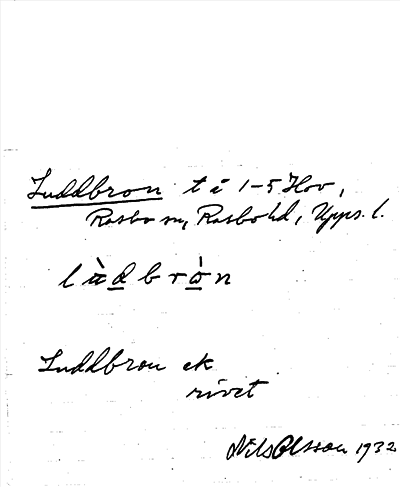 Luddbron t å 1-5 Hov,
Rasbo sn, Rasbo hd, Upps. l.
l ù̀ d b r ò n
Luddbron ek
rivet
Nils Olsson 1932